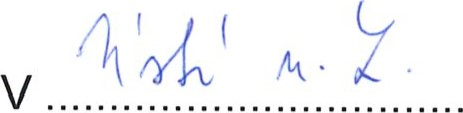 V Ústí n. L.